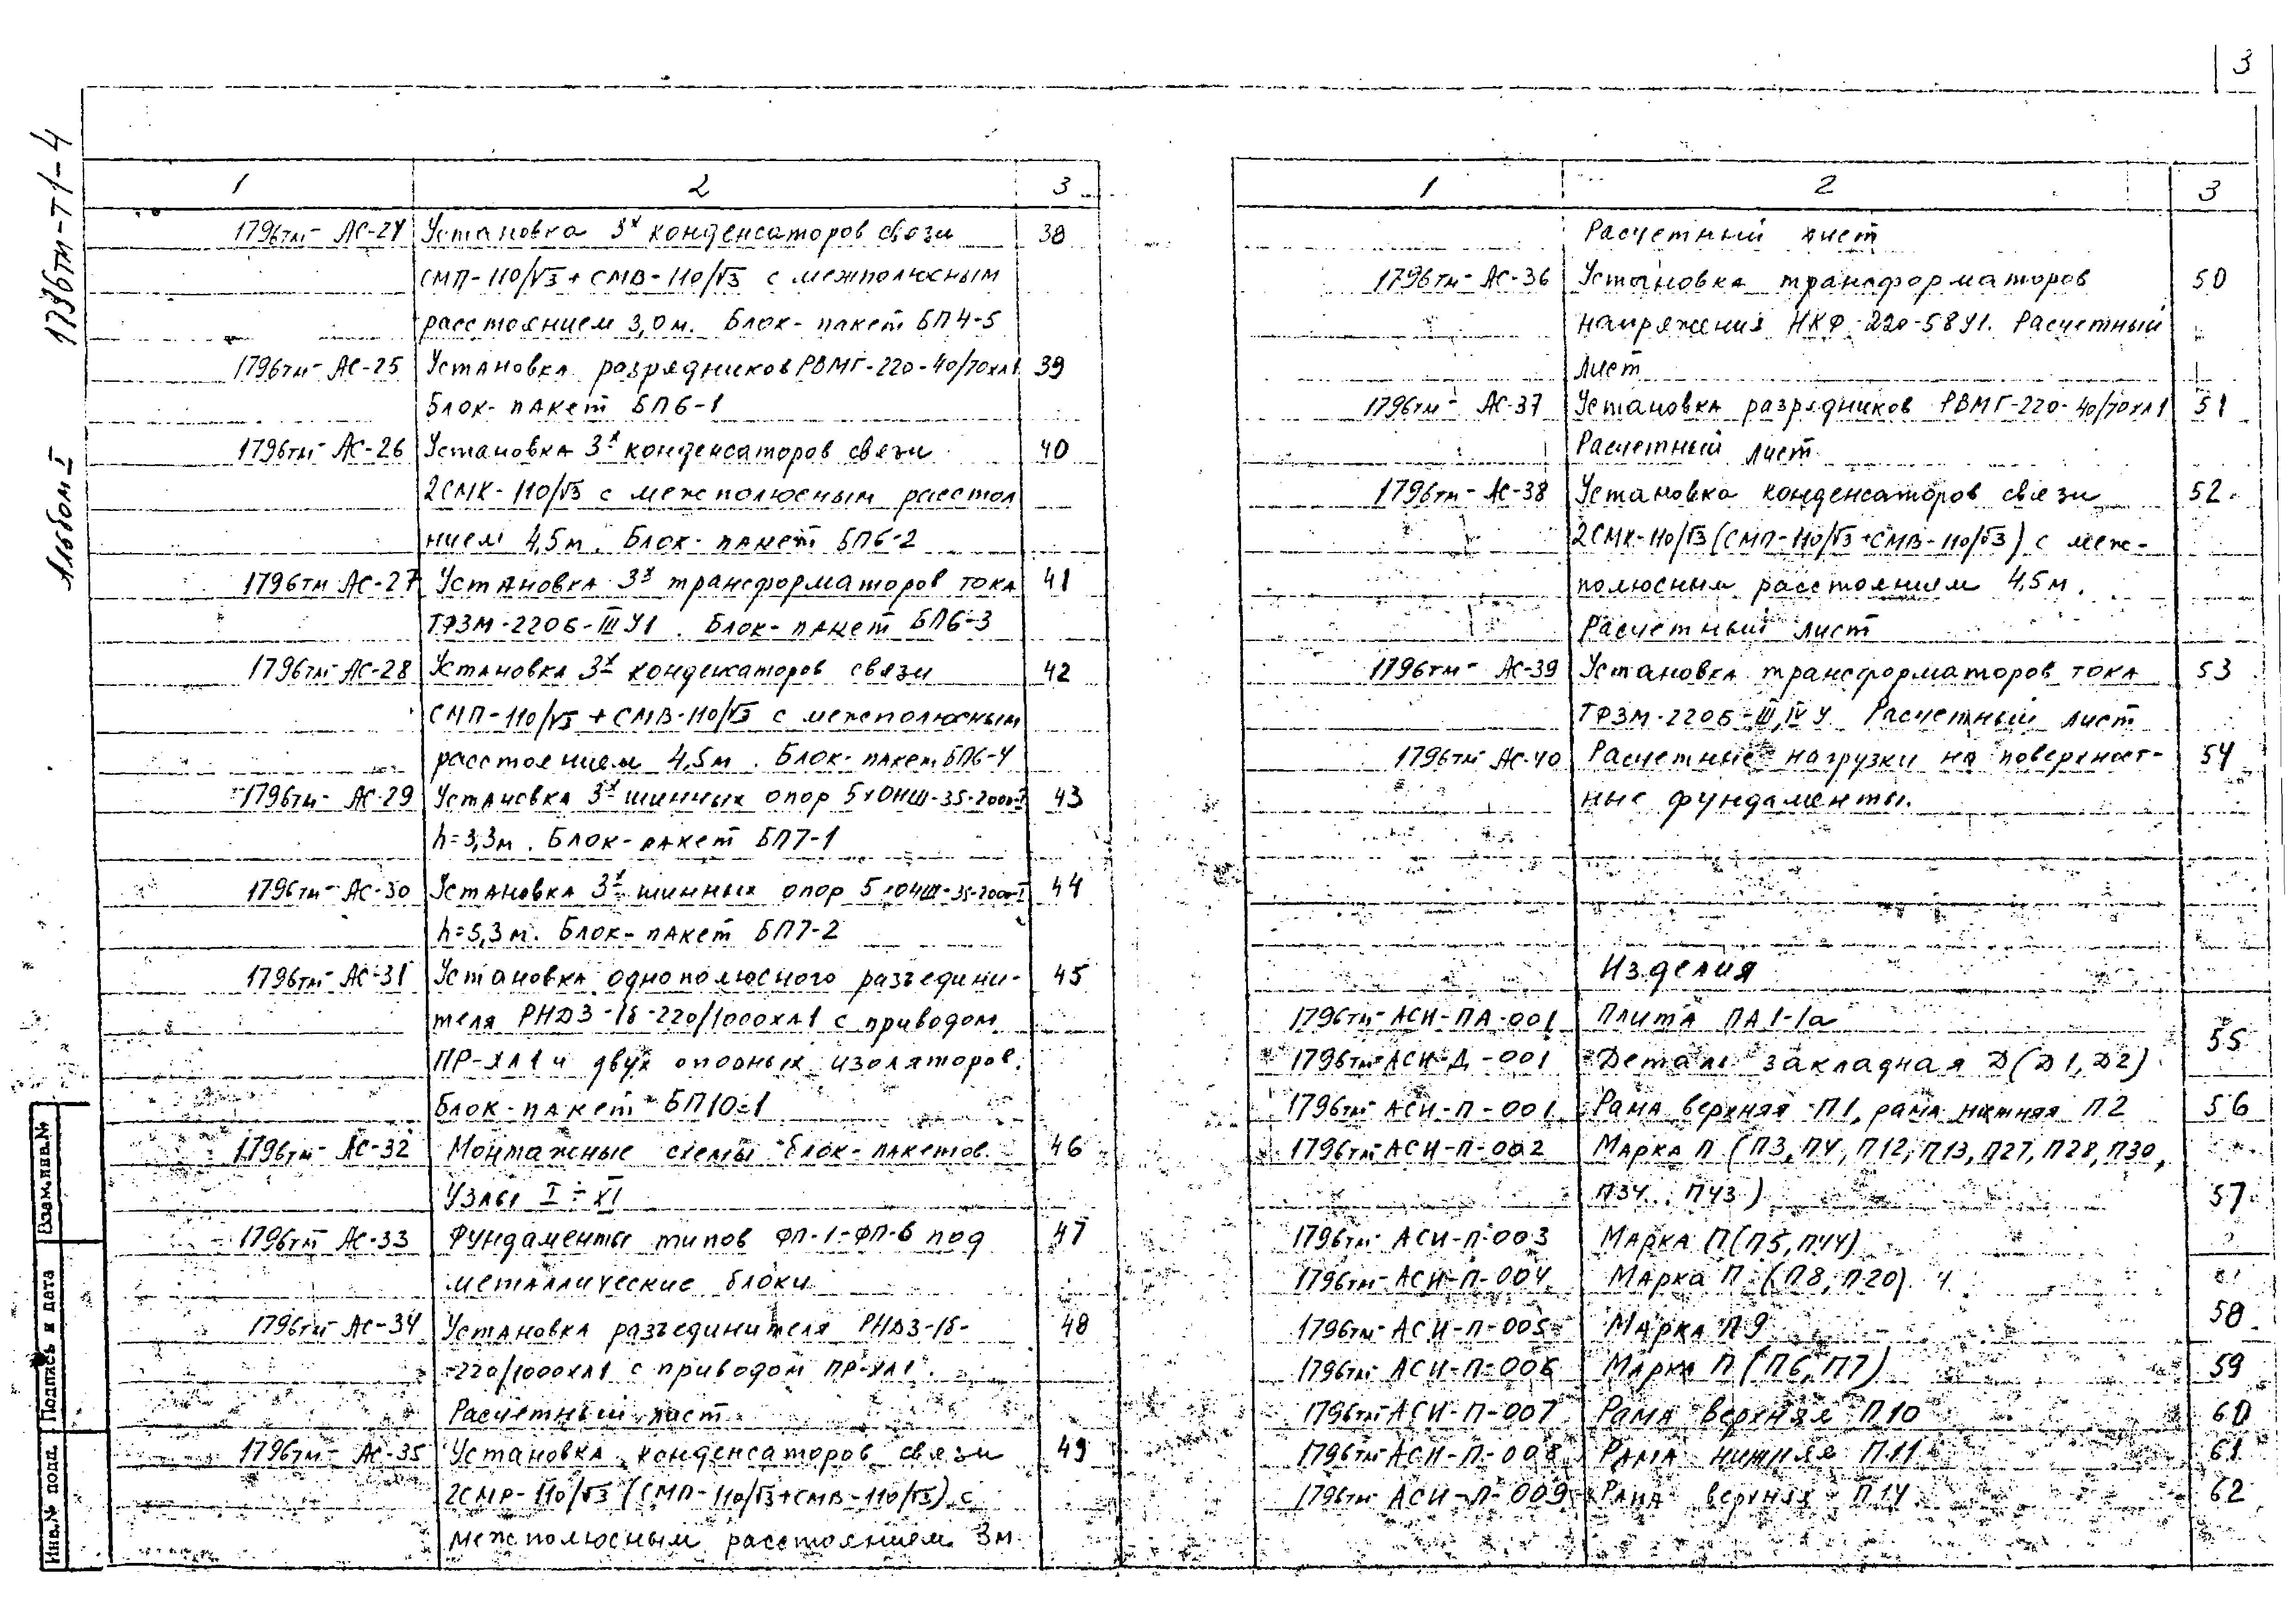 3
1796тм-Т1-4
Альбом I
1 2 3
1796тм- АС-24 Установка 3х конденсаторов связи 38
СМП-110/√3 + СМВ-110/√3 с межполюсным
расстоянием 3,0м. Блок-пакет БП4-5
1796тм- АС-25 Установка разрядников РВМГ-220-40/70хл1 39
Блок-пакет БП6-1
1796тм- АС-26 Установка 3х конденсаторов связи 40
2СМК-110/√3 с межполюсным расстоя
нием 4,5м. Блок-пакет БП6-2
1796тм АС-27 Установка 3х трансформаторов тока 41
ТФЗМ-220Б-III У1. Блок-пакет БП6-3
1796тм- АС-28 Установка 3х конденсаторов связи 42
СМП-110/√3 + СМВ-110/√3 с межполюсным
расстоянием 4,5м. Блок-пакет БП6-4
1796тм- АС-29 Установка 3х шинных опор 5хОНШ-35-2000-I 43
h=3,3м. Блок-пакет БП7-1
1796тм- АС-30 Установка 3х шинных опор 5хОНШ-35-2000-I 44
h=5,3м. Блок-пакет БП7-2
1796тм- АС-31 Установка однополюсного разъедини- 45
теля РНДЗ-1б-220/1000ХЛ1 с приводом
ПР-ХЛ1 и двух опорных изоляторов.
Блок-пакет БП10-1
1796тм- АС-32 Монтажные схемы блок-пакетов. 46
Узлы I ÷ XI
1796тм АС-33 Фундаменты типов ФП-1-ФП-6 под 47
металлические блоки
1796тм- АС-34 Установка разъединителя РНДЗ-1б- 48
-220/1000ХЛ1 с приводом ПР-ХЛ1.
Расчетный лист
1796тм- АС-35 Установка конденсаторов связи 49
2СМР-110/√3 (СМП-110/√3+СМВ-110/√3) с
межполюсным расстоянием 3м
1 2 3
Расчетный лист
1796тм- АС-36 Установка трансформаторов 50
напряжения НКФ-220-58У1. Расчетный
лист
1796тм- АС-37 Установка разрядников РВМГ-220-40/70хл1 51
Расчетный лист
1796тм- АС-38 Установка конденсаторов связи 52
2СМК-110/√3 (СМП-110/√3+СМВ-110/√3) с меж-
полюсным расстоянием 4,5м.
Расчетный лист
1796тм- АС-39 Установка трансформаторов тока 53
ТФЗМ-220Б-III,IV У Расчетный лист
1796тм АС-40 Расчетные нагрузки на поверхност- 54
ные фундаменты.
Изделия
1796тм-АСИ-ПА-001 Плита ПА1-1а
55
1796тм-АСИ-Д-001 Деталь закладная Д(Д1, Д2)
1796тм-АСИ-П-001 Рама верхняя П1, рама нижняя П2 56
1796тм-АСИ-П-002 Марка П (П3, П4, П12, П13, П27, П28, П30,
П34.. П43) 57
1796тм-АСИ-П-003 Марка П(П5, П44)
1796тм-АСИ-П-004 Марка П (П8, П20)
58
1796тм-АСИ-П-005 Марка П9
1796тм-АСИ-П-006 Марка П (П6, П7) 59
1796тм-АСИ-П-007 Рама верхняя П10 60
1796тм-АСИ-П-008 Рама нижняя П11 61
1796тм-АСИ-П-009 Рама верхняя П14 62
Взам.инв.№
Подпись и дата
Инв.№ подл.